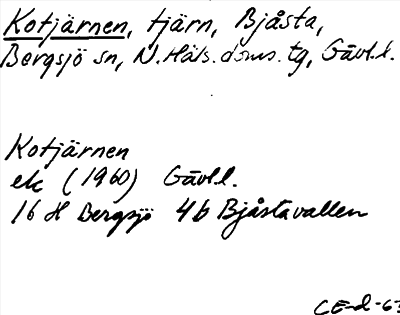 Kotjärnen, tjärn, Bjåsta,
Bergsjö sn, N. Häls. doms. tg, Gävl.l.
Kotjärnen
ek (1960) Gävl.l.
16 H Bergsjö 4b Bjåstavallen
CE-d-63